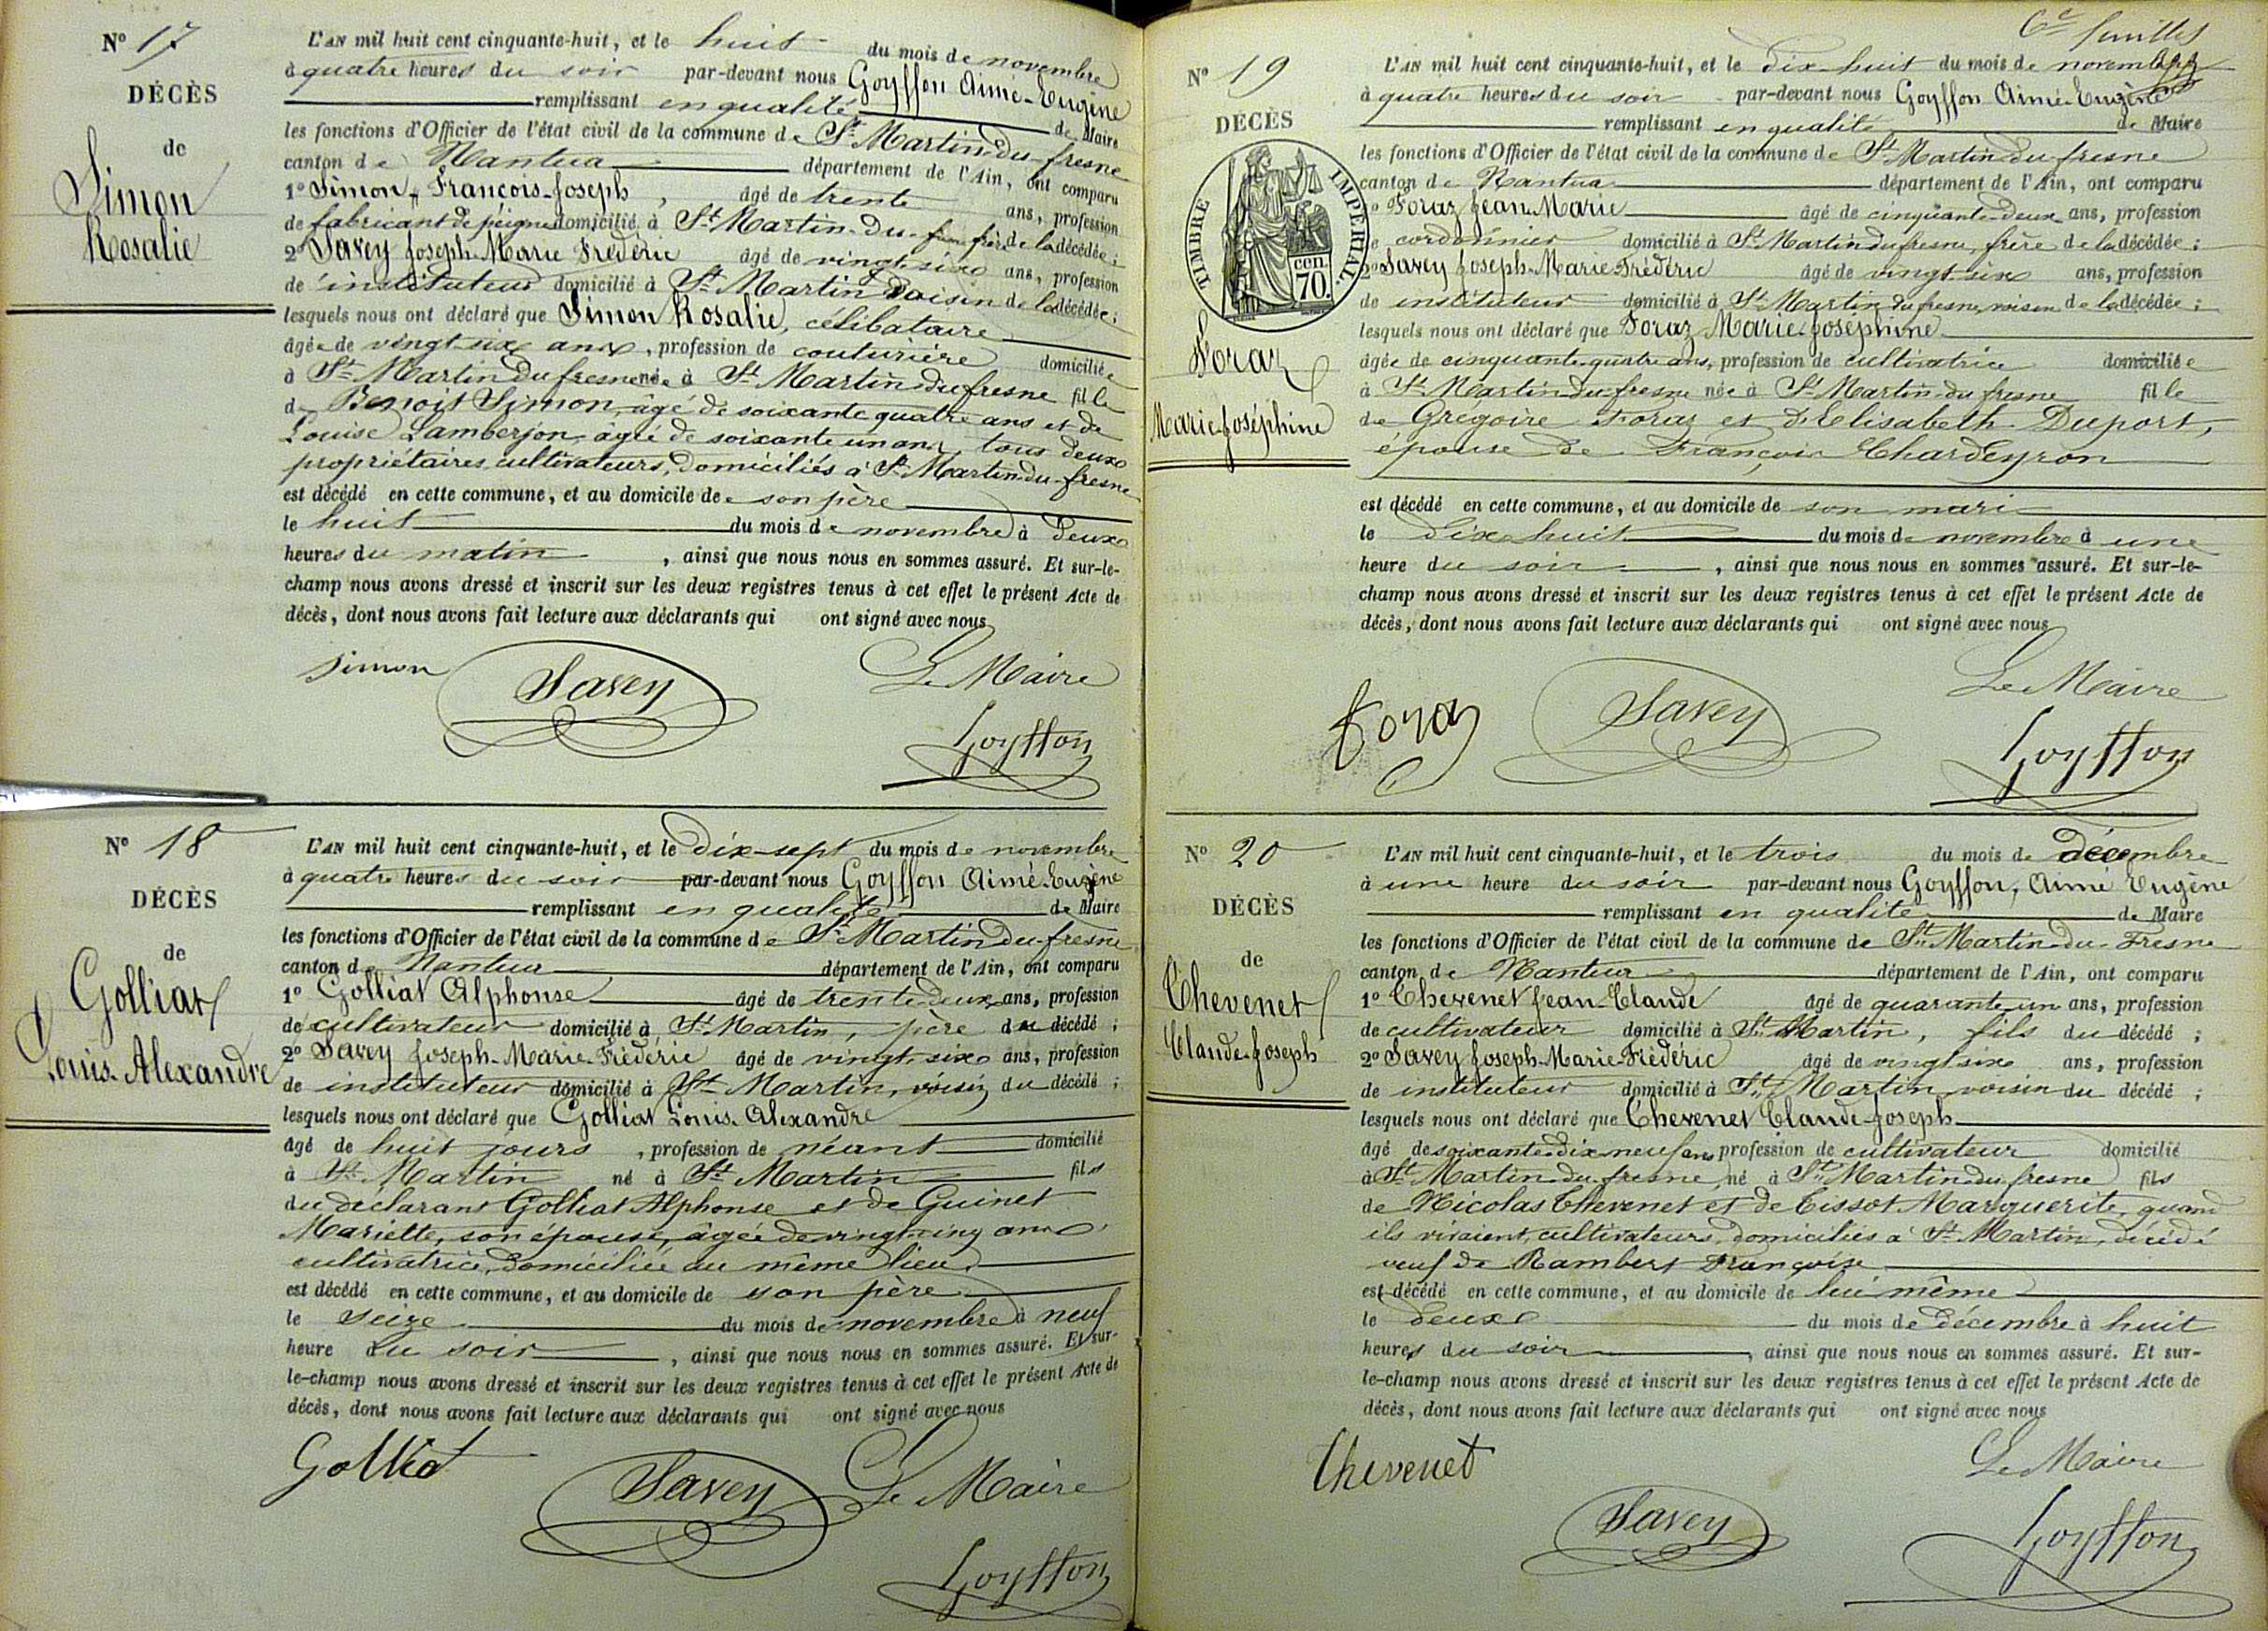 Nº 17
DÉCÈS
de
Simon
Rosalie
L'AN mil huit cent cinquante-huit, et le huit du mois de novembre
à quatre heures du soir par-devant nous Goyffon Aimé-Eugène
remplissant en qualité de Maire
les fonctions d'Officier de l'état civil de la commune de St Martin-du-fresne
canton de Nantua département de l'Ain, ont comparu
1º Simon, François-Joseph, âgé de trente ans, profession
de fabricant de peignes domicilié à St Martin-du- frère de la décédée;
2º Savey Joseph-Marie Frédéric âgé de vingt-six ans, profession
de instituteur domicilié à St Martin voisin de la décédée;
lesquels nous ont déclaré que Simon Rosalie, célibataire
âgée de vingt-six ans, profession de couturière domiciliée
à St Martin du fresne née à St Martin-du-fresne fille
de Benoit Simon, âgé de soixante quatre ans et de
Louise Lamberjon, âgée de soixante un ans, tous deux
propriétaires cultivateurs, domiciliés à St Martin-du-fresne
est décédé en cette commune, et au domicile de son père
le huit du mois de novembre à deux
heures du matin, ainsi que nous nous en sommes assuré. Et sur-le-
champ nous avons dressé et inscrit sur les deux registres tenus à cet effet le présent Acte de
décès, dont nous avons fait lecture aux déclarants qui ont signé avec nous
simon Savey Le Maire
Goyffon
Nº 18
DÉCÈS
de
Golliat
Louis-Alexandre
L'AN mil huit cent cinquante-huit, et le dix-sept du mois de novembre
à quatre heures du soir par-devant nous Goyffon Aimé-Eugène
remplissant en qualité de Maire
les fonctions d'Officier de l'état civil de la commune de St Martin-du-fresne
canton de Nantua département de l'Ain, ont comparu
1º Golliat Alphonse âgé de trente-deux ans, profession
de cultivateur domicilié à St Martin, père du décédé;
2º Savey Joseph-Marie-Frédéric âgé de vingt-six ans, profession
de instituteur domicilié à St Martin, voisin du décédé;
lesquels nous ont déclaré que Golliat Louis-Alexandre
âgé de huit jours, profession de néant domicilié
à St Martin né à St Martin fils
du déclarant Golliat Alphonse et de Guinet
Mariette, son épouse, âgée de vingt-cinq ans
cultivatrice, domiciliée au même lieu,
est décédé en cette commune, et au domicile de son père
le seize du mois de novembre à neuf
heure du soir, ainsi que nous nous en sommes assuré. Et sur-
le-champ nous avons dressé et inscrit sur les deux registres tenus à cet effet le présent Acte de
décès, dont nous avons fait lecture aux déclarants qui ont signé avec nous
Golliat Savey Le Maire
Goyffon
feuillet
Nº 19
DÉCÈS
TIMBRE IMPÉRIAL
cen.
70.
Foraz
Marie-Joséphine
L'AN mil huit cent cinquante-huit, et le dix-huit du mois de novembre
à quatre heures du soir par-devant nous Goyffon Aimé-Eugène
remplissant en qualité de Maire
les fonctions d'Officier de l'état civil de la commune de St Martin-du-fresne
canton de Nantua département de l'Ain, ont comparu
1º Foraz Jean-Marie âgé de cinquante-deux ans, profession
de cordonnier domicilié à St Martin du fresne, frère de la décédée;
2º Savey Joseph-Marie-Frédéric âgé de vingt-six ans, profession
de instituteur domicilié à St Martin du fresne, voisin de la décédée;
lesquels nous ont déclaré que Foraz Marie-Joséphine
âgée de cinquante-quatre ans, profession de cultivatrice domiciliée
à St Martin-du-fresne née à St Martin-du-fresne fille
de Grégoire Foraz et d'Elisabeth Duport,
épouse de François Chardeyron
est décédé en cette commune, et au domicile de son mari
le dix-huit du mois de novembre à une
heure du soir, ainsi que nous nous en sommes assuré. Et sur-le-
champ nous avons dressé et inscrit sur les deux registres tenus à cet effet le présent Acte de
décès, dont nous avons fait lecture aux déclarants qui ont signé avec nous
foraz Savey Le Maire
Goyffon
Nº 20
DÉCÈS
de
Chevenet
Claude-Joseph
L'AN mil huit cent cinquante-huit, et le trois du mois de décembre
à une heure du soir par-devant nous Goyffon, Aimé Eugène
remplissant en qualité de Maire
les fonctions d'Officier de l'état civil de la commune de St Martin-du-Fresne
canton de Nantua département de l'Ain, ont comparu
1º Chevenet Jean-Claude âgé de quarante-un ans, profession
de cultivateur domicilié à St Martin, fils du décédé;
2º Savey Joseph-Marie-Frédéric âgé de vingt-six ans, profession
de instituteur domicilié à St Martin, voisin du décédé;
lesquels nous ont déclaré que Chevenet Claude-Joseph
âgé de soixante-dix-neuf ans profession de cultivateur domicilié
à St Martin-du-fresne, né à St Martin-du-fresne fils
de Nicolas Chevenet et de Tissot Marguerite, quand
ils vivaient, cultivateurs, domiciliés à St Martin, décédé
veuf de Rambert Françoise
est décédé en cette commune, et au domicile de lui même
le deux du mois de décembre à huit
heures du soir, ainsi que nous nous en sommes assuré. Et sur-
le-champ nous avons dressé et inscrit sur les deux registres tenus à cet effet le présent Acte de
décès, dont nous avons fait lecture aux déclarants qui ont signé avec nous
Chevenet Savey Le Maire
Goyffon